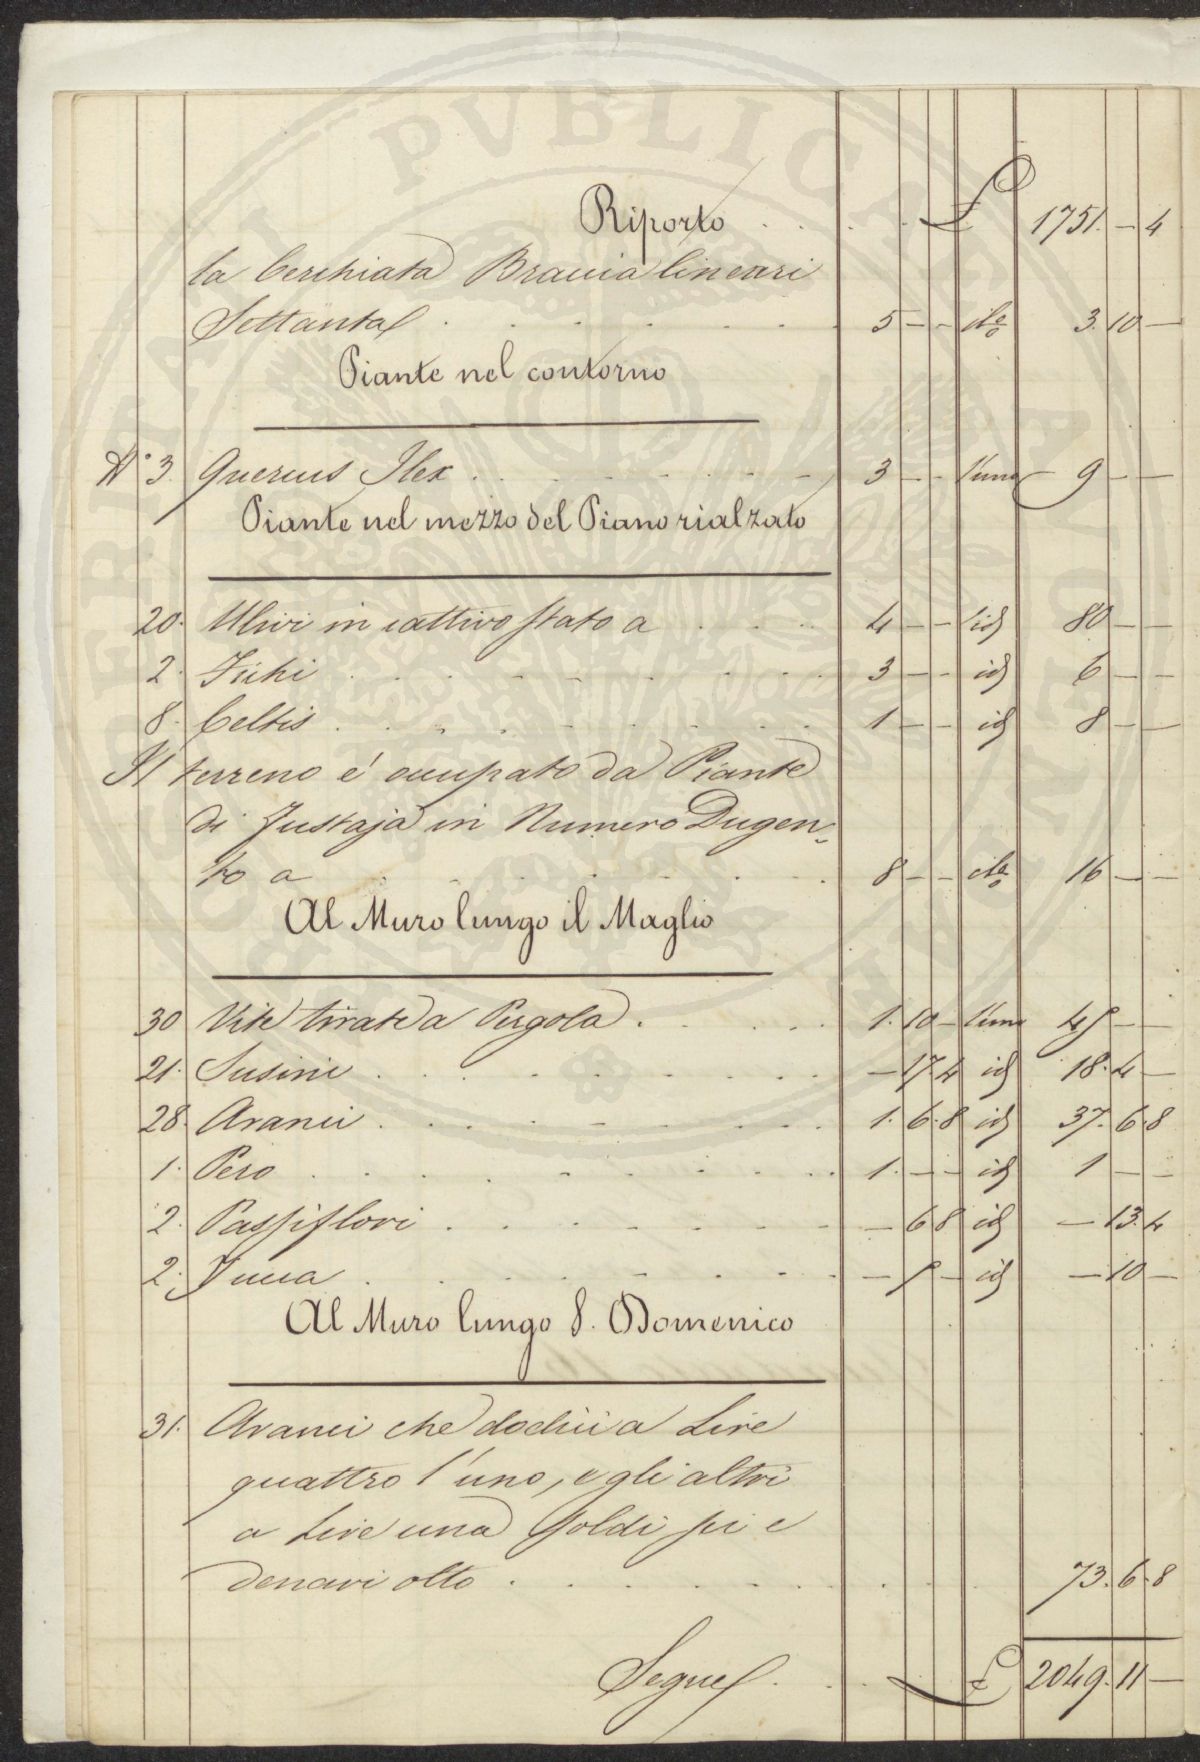 Riporto . . . . . £ 1751. – 4
la Cerchiata Braccia lineari
Settanta . . . . . . . 5 – – il % 3. 10 –
Piante nel contorno
N.° 3. Quercus Ilex . . . . . . . 3 – – l'uno 9 – –
Piante nel mezzo del Piano rialzato
20. Ulivi in cattivo stato a . . . . 4 – – id 80 – –
2. Fichi . . . . . . . . . 3 – – id 6 – –
8. Celtis . . . . . . . . . 1 – – id 8 – –
Il terreno é occupato da Piante
di Justaja in Numero Dugen-
to a . . . . . . . . 8 – – il % 16 – –
Al Muro lungo il Maglio
30 Vite tirate a Pergola . . . . . 1. 10 – l'una 45 – –
21. Susini . . . . . . . . – 17 4 id 18. 4 –
28. Aranci . . . . . . . . 1. 6. 8 id 37. 6. 8
1. Pero . . . . . . . . . 1. – – id 1 – –
2. Passiflori . . . . . . . – 6 8 id – 13. 4
2. Jucca . . . . . . . . – 5 – id – 10 –
Al Muro lungo S. Domenico
31. Aranci che dodici a Lire
quattro l'uno, e gli altri
a Lire una soldi sei e
denari otto . . . . . . . 73. 6. 8
Segue . . . £ 2049. 11 –